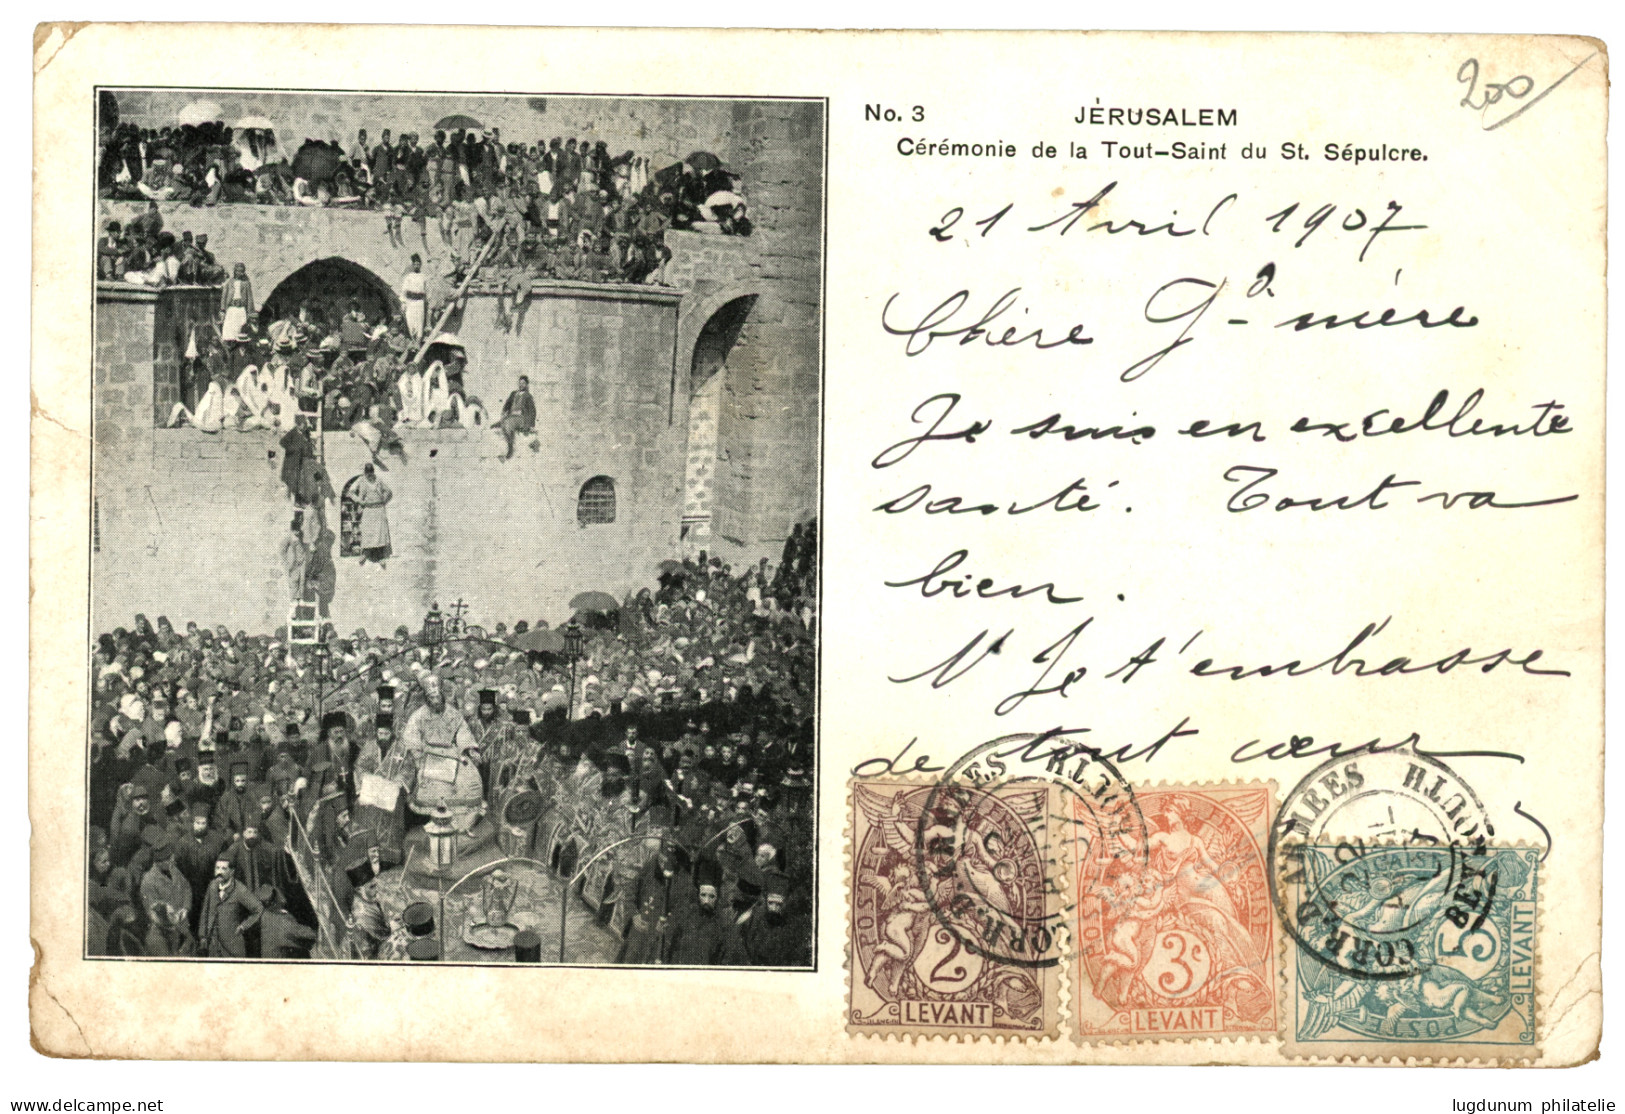 200
No. 3 JÉRUSALEM
Cérémonie de la Tout-Saint du St. Sépulcre.
21 Avril 1907
Chère Gde mère
Je suis en excellente
santé. Tout va
bien.
Je t'embrasse
de tout cœur
CORR. D. ARMEES BEYROUTH
CORR. D. ARMEES BEYROUTH
POSTE FRANÇAISE 2c LEVANT
POSTE FRANÇAISE 3c LEVANT
POSTE FRANÇAISE 5c LEVANT
delcampe.net
lugdunum philatelie